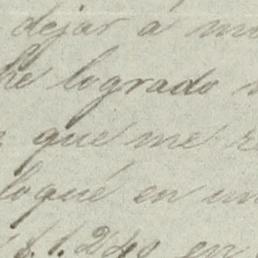 dejar á
he logrado
que me
loqué en un
$1.240 en